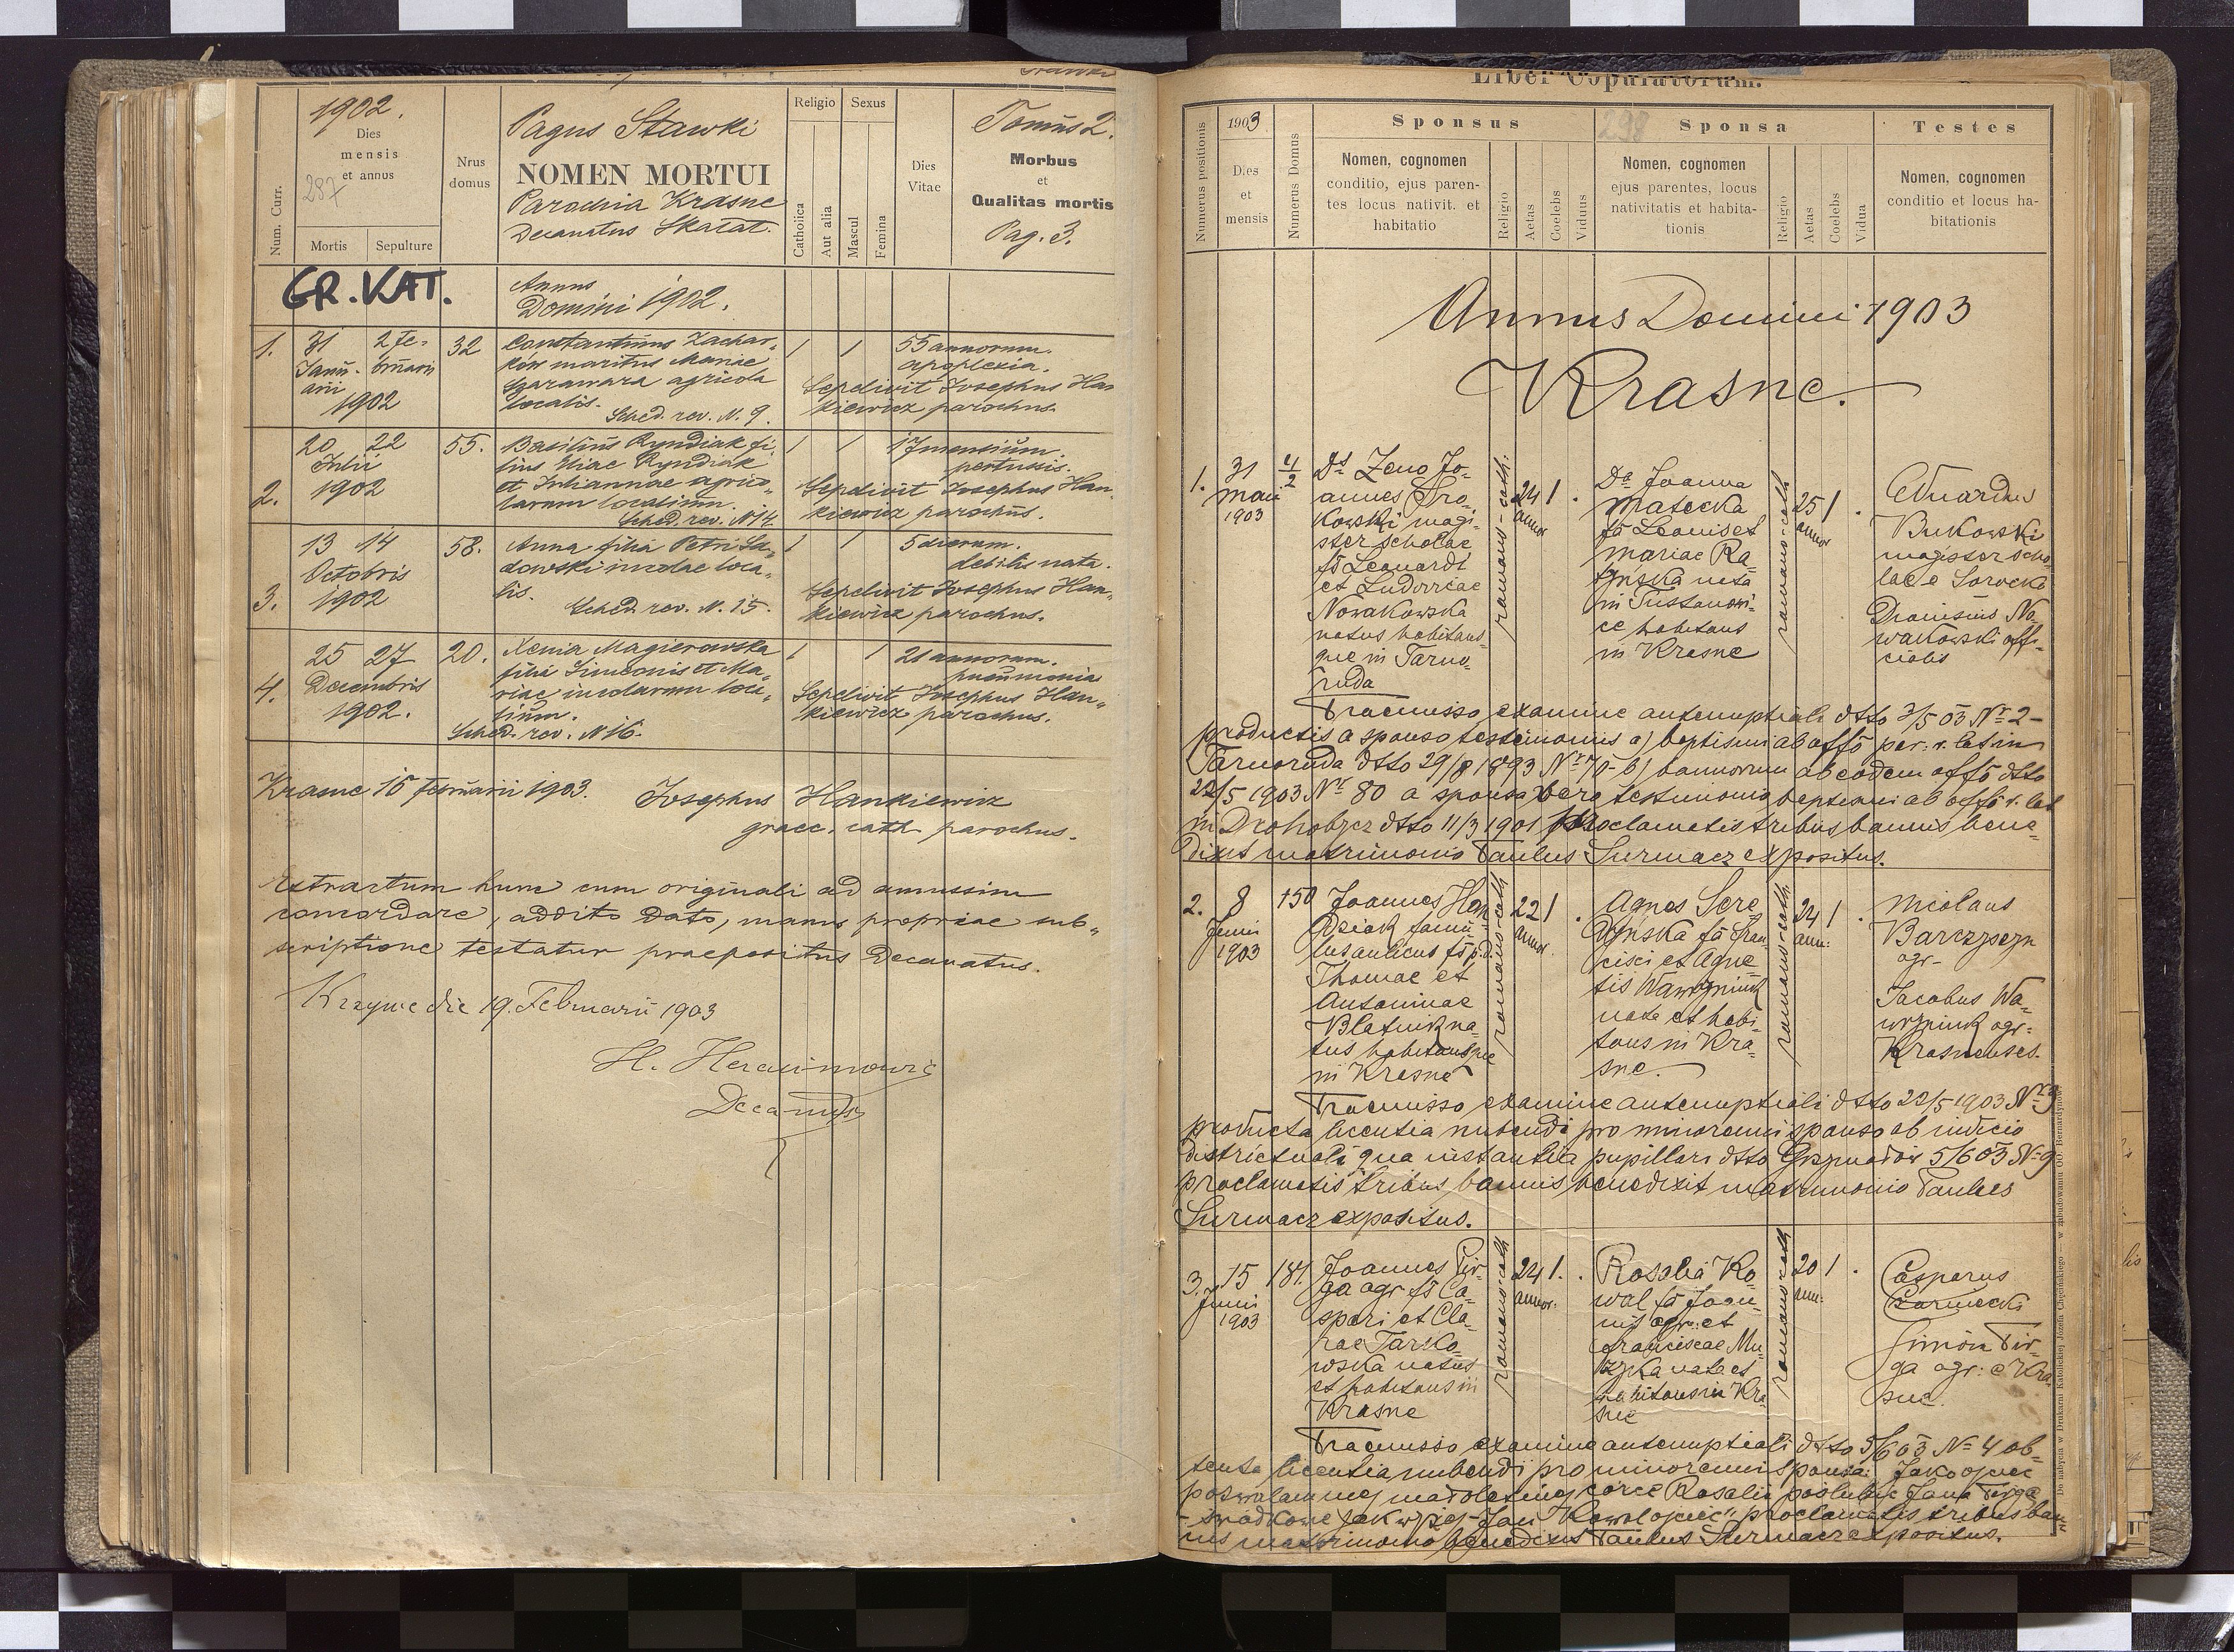 1902.
Dies
mensis
et annus
287
Num. Curr.
Mortis
Sepulture
Nrus
domus
Pagus Stawki
NOMEN MORTUI
Parochia Krasne
Decanatus Skałat.
Religio
Sexus
Catholica
Aut alia
Mascul
Femina
Dies
Vitae
Tomus 2.
Morbus
et
Qualitas mortis
Pag. 3.
GR. KAT.
Annus
Domini 1902.
1.
31 2 Fe-
Janu- bruarii
arii
1902
32
Constantinus Zachar-
ków maritus Mariae
agricola
localis.
Sched. rev. N. 9.
1 1
55 annorum.
apoplexia.
Sepelivit Josephus Han
kiewicz parochus.
2.
20 22
Julii
1902
55.
Basilius Ryndiak fi-
lius Eliae Ryndiak
et Juliannae agrico-
larum localium.
Sched. rev. N 14.
1 1
17 mensium.
pertussis.
Sepelivit Josephus Han-
kiewicz parochus.
3.
13 14
Octobris
1902
58.
Anna filia Petri Sa-
dowski incolae loca-
lis.
Sched. rev. N. 15.
1 1
5 dierum.
debilis nata.
Sepelivit Josephus Han-
kiewicz parochus.
4.
25 27
Decembris
1902.
20.
Xenia Magierowska
filia Simeonis et Ma-
riae incolarum loca-
lium.
Sched. rev. N 16.
1 1
21 annorum.
pneumonia
Sepelivit Josephus Han-
kiewicz parochus.
Krasne 15 februarii 1903. Josephus Hankiewicz
graec. cath parochus.
Extractum hunc cum originali ad amussim
concordare, addito dato, manus propriae sub-
scriptione testatur praepositus Decanatus.
die 19. Februarii 1903
H. Herasimowicz
Decanus
Liber Copulatorum.
Numerus positionis
1903
Dies
et
mensis
Numerus Domus
Sponsus
Nomen, cognomen
conditio, ejus paren-
tes locus nativit. et
habitatio
Religio
Aetas
Coelebs
Viduus
298
Sponsa
Nomen, cognomen
ejus parentes, locus
nativitatis et habita-
tionis
Religio
Aetas
Coelebs
Vidua
Testes
Nomen, cognomen
conditio et locus ha-
bitationis
Annus Domini 1903
Krasne.
1.
31
maii
1903
4/2
Ds Zeno Jo-
annes
kowski magi-
ster scholae
fs Leonardi
et Ludovicae
Nowakowska
natus habitans-
que in Tarno-
ruda
romano-cath.
24 1 .
annor
Da Joanna
Małecka
fa Leonis et
Mariae Ra-
nata
in Tustanowi-
ce habitans
in Krasne
romano-cath
25 1 .
annor
Eduardus
Bukowski
magister scho-
lae e Sorocka
Dionisius No-
wakowski offi-
cialis
Praemisso examine antenuptiali dtto 7/5 03 Nr 2-
productis a sponso testimoniis a) baptismi ab offo par. r. lat in
Tarnoruda dtto 29/8 1893 Nr b) bannorum ab eodem offo dtto
22/5 1903 Nr 80 a sponsa vero testimonio baptismi ab offo r. lat
in Drohobycz dtto 11/3 1901 Proclamatis tribus bannis bene-
dixit matrimonio Paulus Surmacz expositus.
2.
8
Junii
1903
150
Joannes Han-
dziak famu-
lus aulicus fs p.d.
Thomae et
Antoninae
Blatnik na-
tus habitansque
in Krasne
romano-cath
22 1 .
annor.
Agnes Sere-
dyńska fa Fran-
cisci et Agne-
tis Wawryniuk
nata et habi-
tans in Kra-
sne.
romano-cath
24 1 .
ann:
Nicolaus
Barczyszyn
agr-
Jacobus Wa-
wryniuk agr-
Krasnenses.
Praemisso examine antenuptiali dtto 22/5 1903 Nr 3
producta licentia nubendi pro minorenni sponso ab iudicio
districtuali qua instantia pupillari dtto Grzymałów 5/6 03 N 9
proclamatis tribus bannis benedixit matrimonio Paulus
Surmacz expositus.
3.
15
Junii
1903
187.
Joannes Pir-
ga agr fs Ca-
spari et Cla-
rae Tarko-
wska natus
et habitans in
Krasne
romano-cath
24 1. .
annor.
Rosalia Ko-
wal fa Joan-
nis agr: et
Franciscae Mu-
zyka nata et
habitans in Kra-
sne
romano-cath
20 1 .
ann:
Casparus
Czarnecki
Simon Pir-
ga agr: e Kra-
sne.
Praemisso examine antenuptiali dtto 5/6 03 N 4 ob-
tenta licentia nubendi pro minorenni sponsa: Jako ojciec
pozwalam mej małoletniej córce Rosalii poślubić Jana Pirga
- świadkowie jak wyżej - Jan Kowal ojciec" proclamatis tribus ban-
nis matrimonio benedixit Paulus Surmacz expositus.
Do nabycia w Drukarni Katolickiej Józefa Chęcińskiego — w zabudowaniu OO. Bernardynów